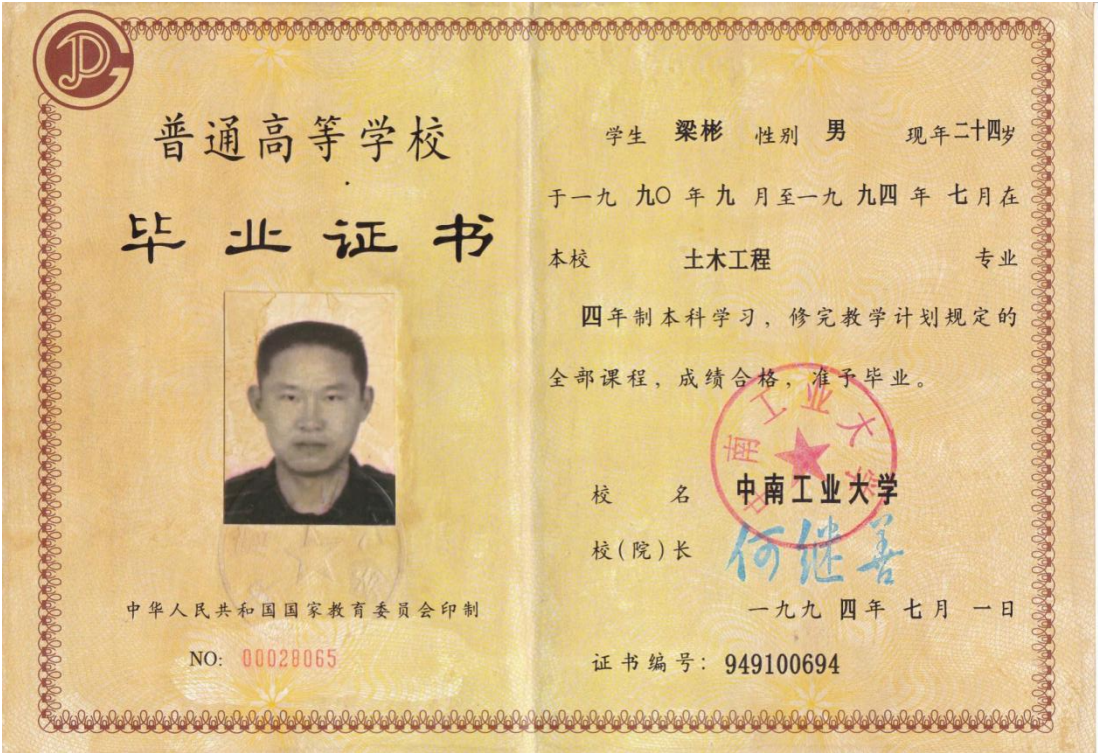 普通高等学校
毕业证书
中华人民共和国国家教育委员会印制
NO: 00028065
学生 梁彬 性别 男 现年二十四岁
于一九九〇年九月至一九九四年七月在
本校 土木工程 专业
四年制本科学习，修完教学计划规定的
全部课程，成绩合格，准予毕业。
中南工业大学
校名 中南工业大学
校(院)长 何继善
一九九四年七月一日
证书编号：949100694